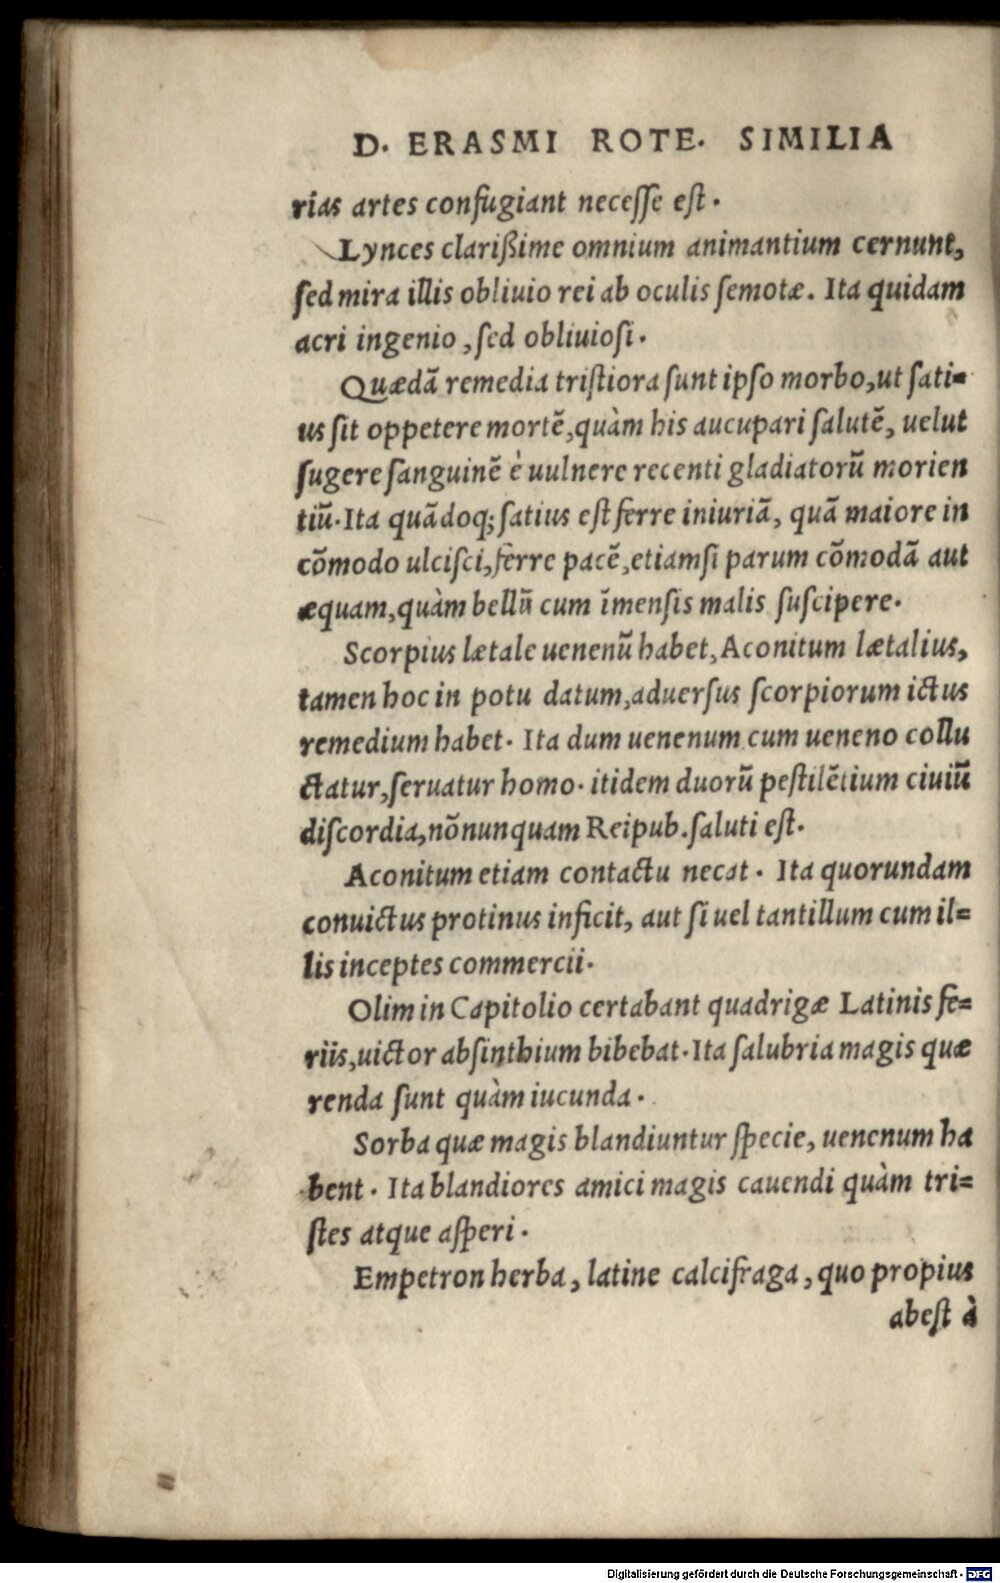 D. ERASMI ROTE. SIMILIA
rias artes confugiant necesse est.
Lynces clarißime omnium animantium cernunt,
sed mira illis obliuio rei ab oculis semotæ. Ita quidam
acri ingenio, sed obliuiosi.
Quædā remedia tristiora sunt ipso morbo, ut sati=
us sit oppetere mortē, quàm his aucupari salutē, uelut
sugere sanguinē è uulnere recenti gladiatorū morien
tiū. Ita quādoq; satius est ferre iniuriā, quā maiore in
cōmodo ulcisci, ferre pacē, etiamsi parum cōmodā aut
æquam, quàm bellū cum īmensis malis suscipere.
Scorpius lætale uenenū habet, Aconitum lætalius,
tamen hoc in potu datum, aduersus scorpiorum ictus
remedium habet. Ita dum uenenum cum ueneno collu
ctatur, seruatur homo. itidem duorū pestilētium ciuiū
discordia, nōnunquam Reipub. saluti est.
Aconitum etiam contactu necat. Ita quorundam
conuictus protinus inficit, aut si uel tantillum cum il=
lis inceptes commercii.
Olim in Capitolio certabant quadrigæ Latinis fe=
riis, uictor absinthium bibebat. Ita salubria magis quæ
renda sunt quàm iucunda.
Sorba quæ magis blandiuntur specie, uenenum ha
bent. Ita blandiores amici magis cauendi quàm tri=
stes atque asperi.
Empetron herba, latine calcifraga, quo propius
abest à
Digitalisierung gefördert durch die Deutsche Forschungsgemeinschaft - DFG